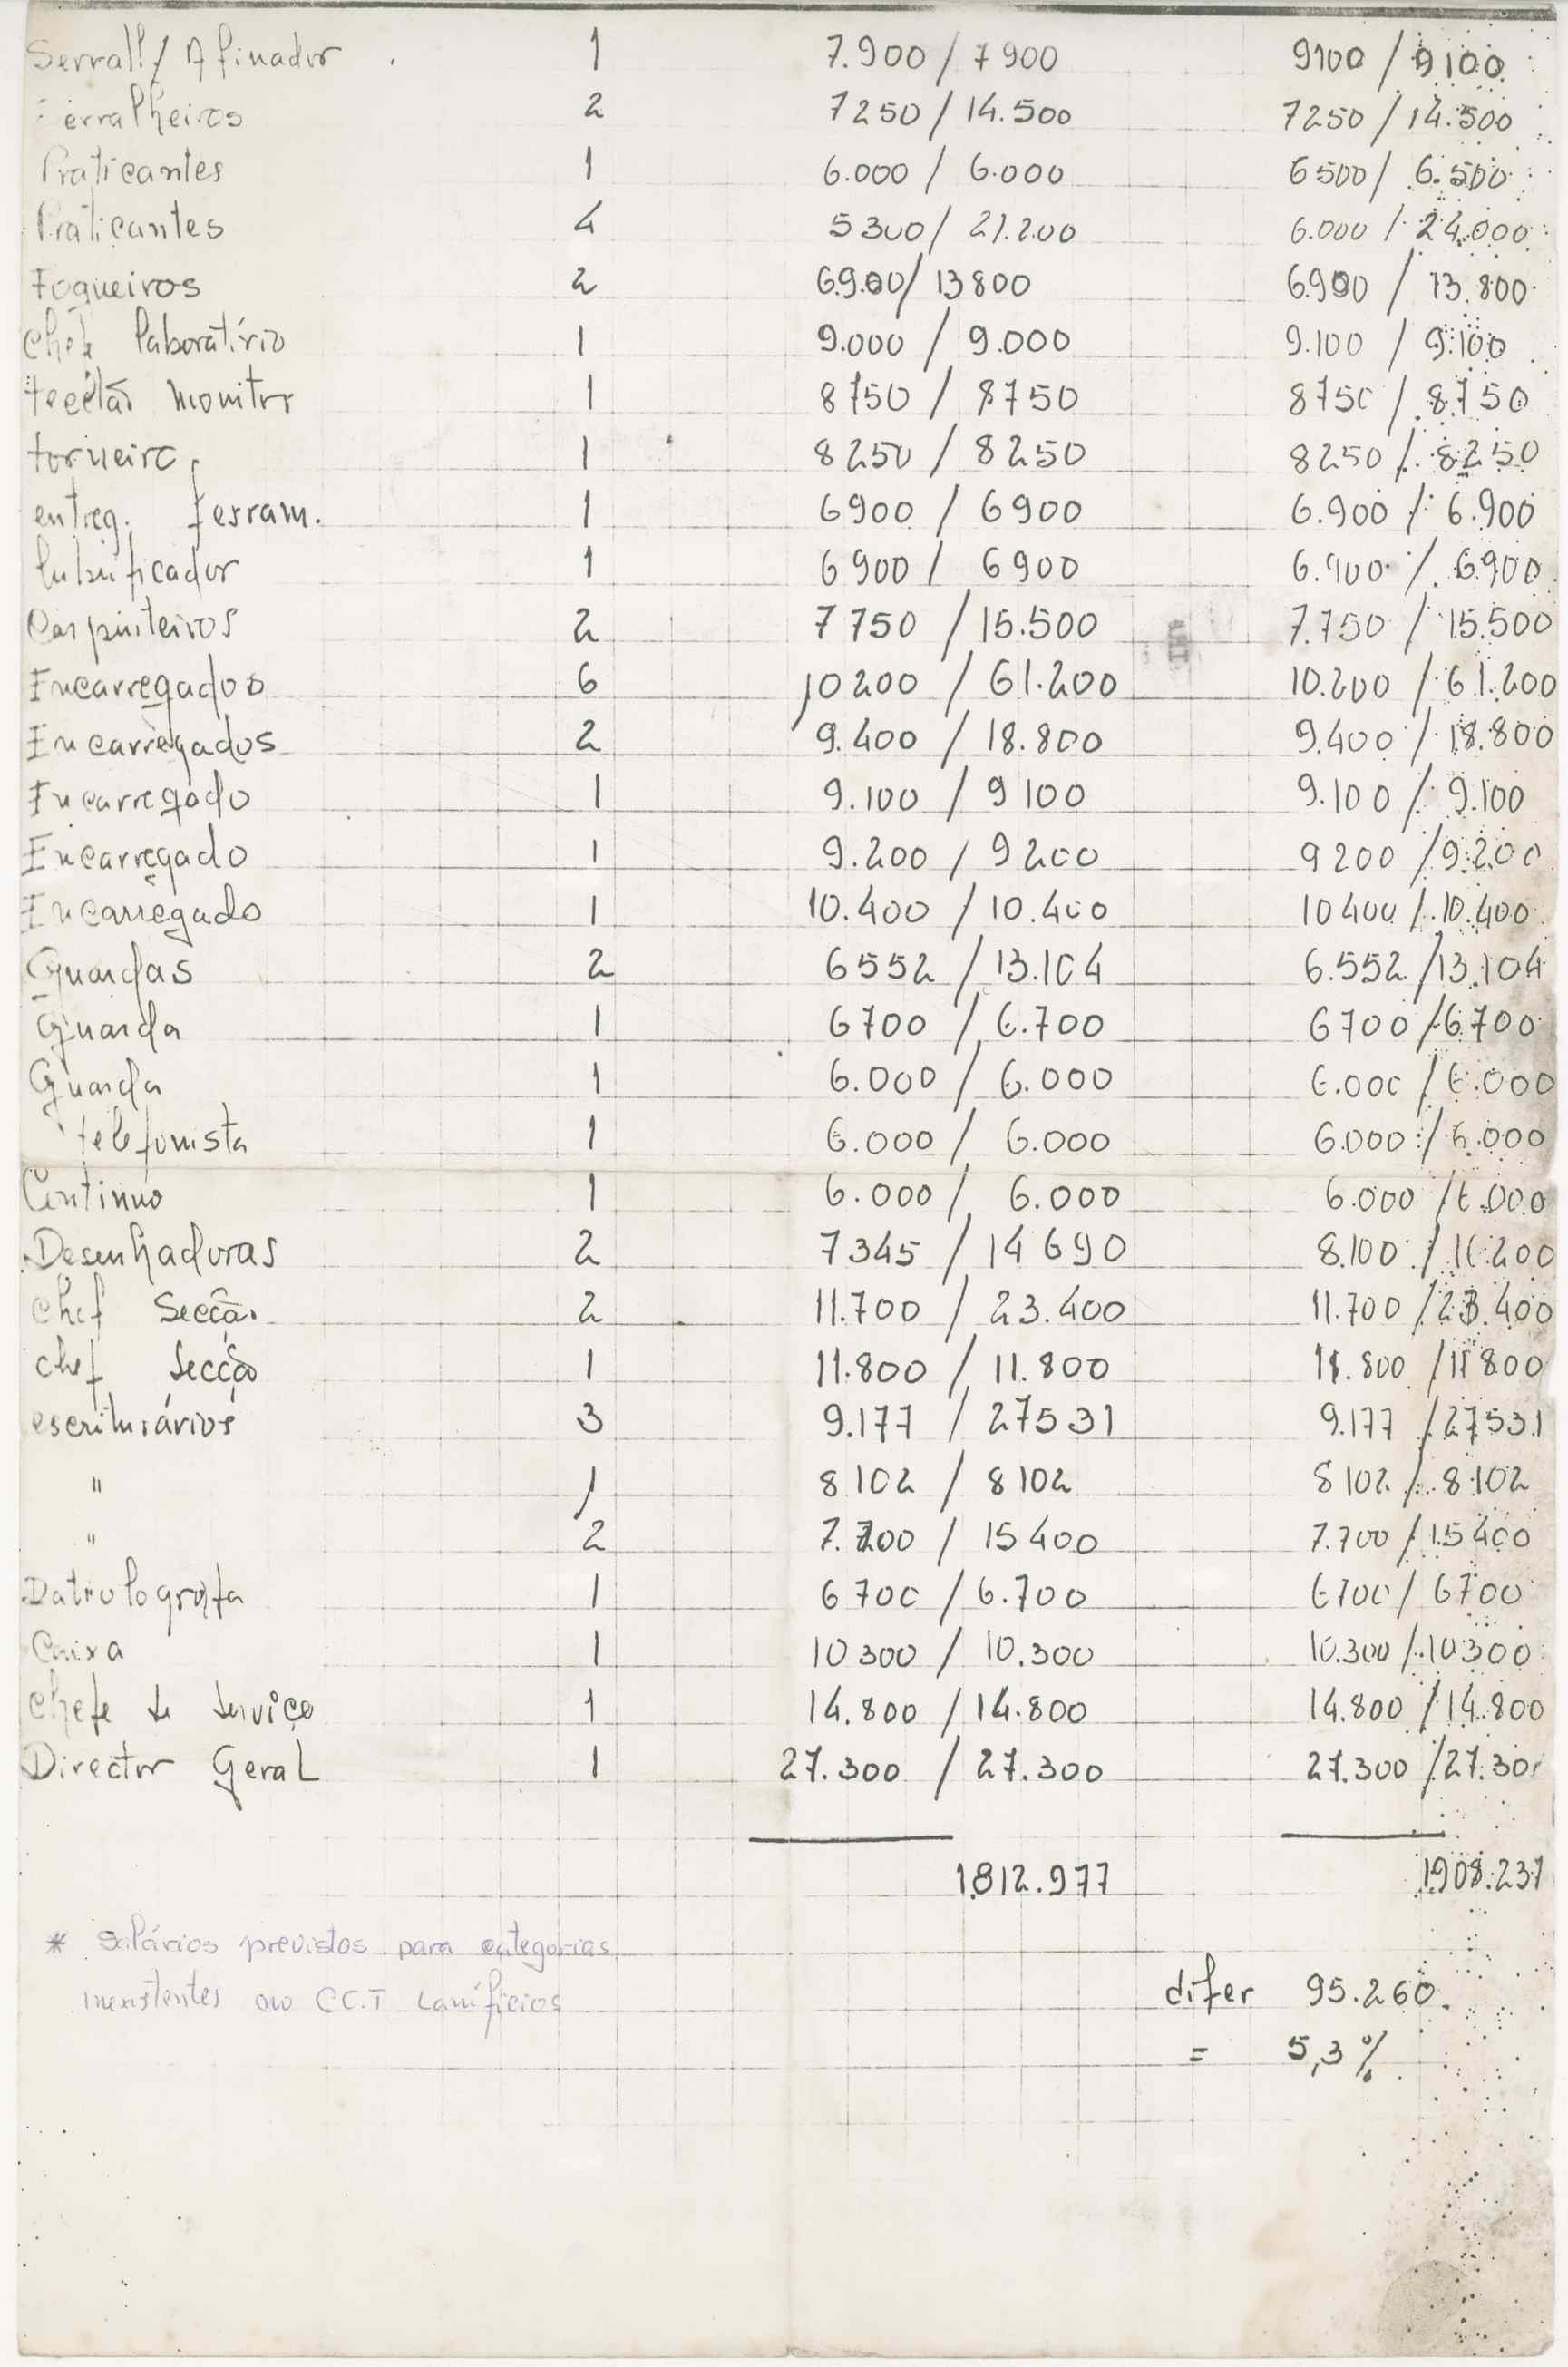 Serralh/Afinador 1 7.900 / 7900 9100 / 9100
Serralheiros 2 7250 / 14.500 7250 / 14.500
Praticantes 1 6.000 / 6.000 6500 / 6.500
Praticantes 4 5300 / 21.200 6.000 / 24.000
Fogueiros 2 6.900 / 13800 6.900 / 13.800
Chefe laboratório 1 9.000 / 9.000 9.100 / 9.100
tecelão monitor 1 8750 / 8750 8750 / 8750
torneiro 1 8250 / 8250 8250 / 8250
entreg. ferram. 1 6900 / 6900 6.900 / 6.900
lubrificador 1 6900 / 6900 6.900 / 6900
Carpinteiros 2 7750 / 15.500 7.750 / 15.500
Encarregados 6 10200 / 61.200 10.200 / 61.200
Encarregados 2 9.400 / 18.800 9.400 / 18.800
Encarregado 1 9.100 / 9100 9.100 / 9.100
Encarregado 1 9.200 / 9200 9200 / 9.200
Encarregado 1 10.400 / 10.400 10400 / 10.400
Guardas 2 6552 / 13.104 6.552 / 13.104
Guarda 1 6700 / 6.700 6700 / 6700
Guarda 1 6.000 / 6.000 6.000 / 6.000
telefonista 1 6.000 / 6.000 6.000 / 6.000
Contínuo 1 6.000 / 6.000 6.000 / 6.000
Desenhadoras 2 7345 / 14690 8.100 / 16.200
Chef Secção 2 11.700 / 23.400 11.700 / 23.400
chef Secção 1 11.800 / 11.800 11.800 / 11800
escriturários 3 9.177 / 27531 9.177 / 27531
" 1 8102 / 8102 8102 / 8102
" 2 7.700 / 15400 7.700 / 15400
Datilografa 1 6700 / 6.700 6700 / 6700
Caixa 1 10300 / 10.300 10.300 / 10300
Chefe de serviço 1 14.800 / 14.800 14.800 / 14.800
Director Geral 1 27.300 / 27.300 27.300 / 27.300
1.812.977 1.908.237
* Salários previstos para categorias
inexistentes no CC.T Lanifícios
difer 95.260.
= 5,3 %